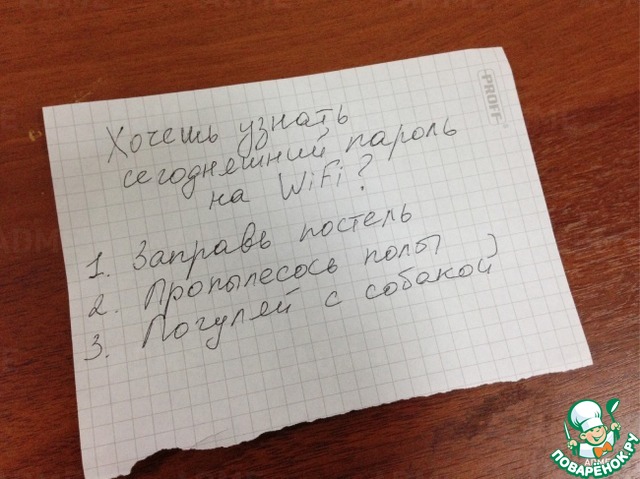 PROFF
Хочешь узнать
сегодняшний пароль
на WiFi?
1. Заправь постель
2. Пропылесось полы
3. Погуляй с собакой )
ПОВАРЁНОК.РУ